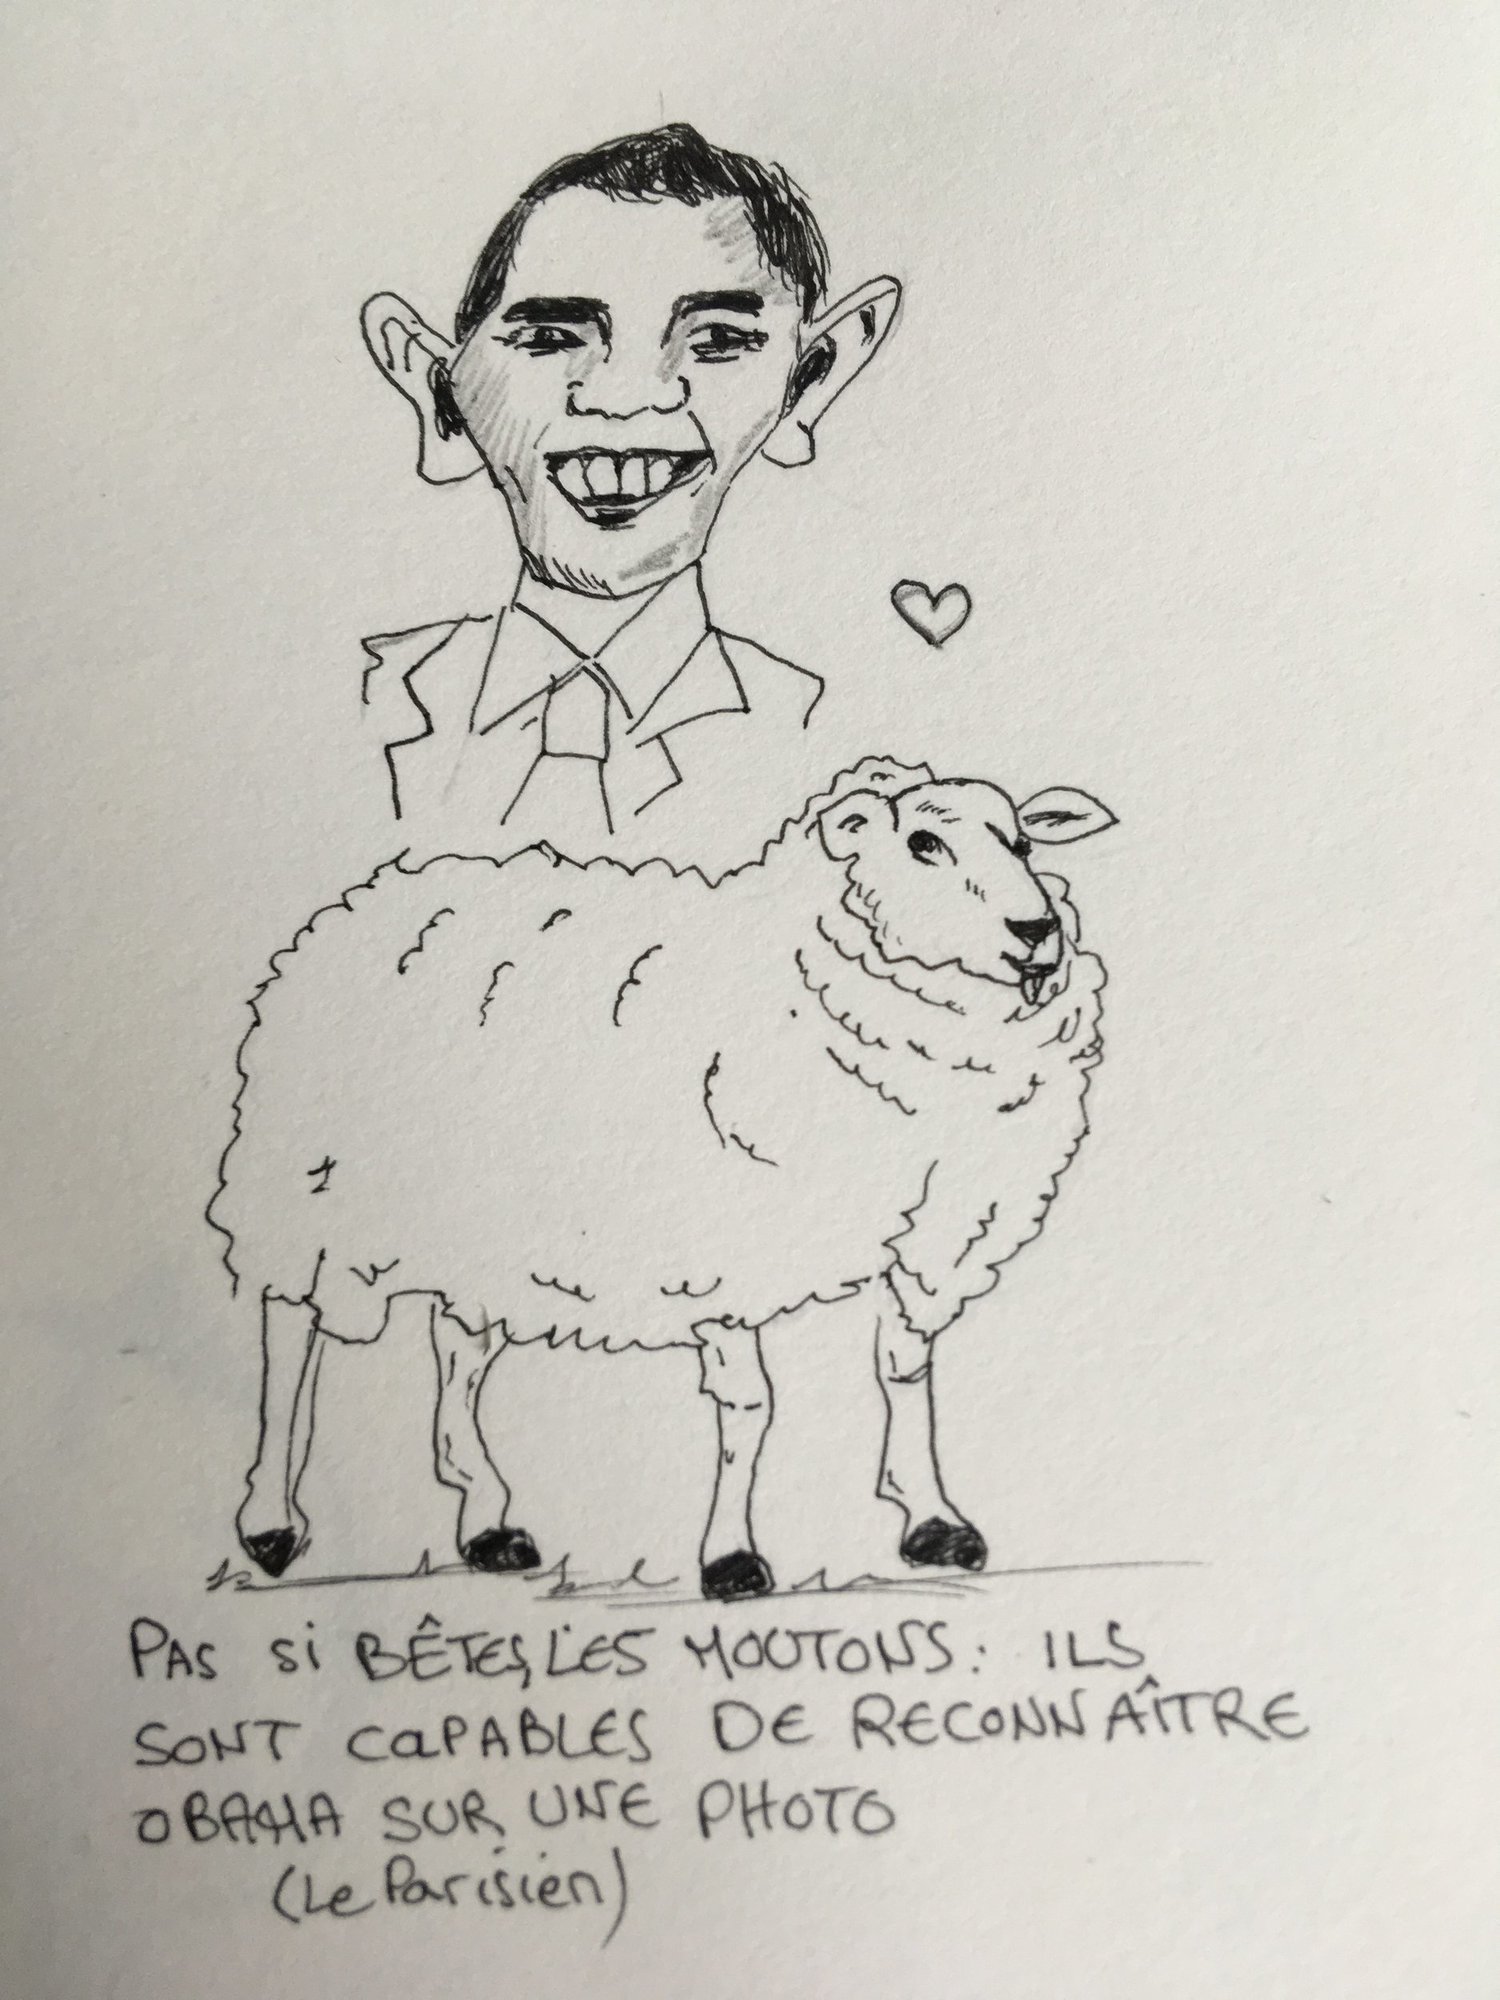 PAS Si BÊTES, LES MOUTONS : ILS
SONT CaPABLES DE RECONNAÎTRE
OBAMA SUR UNE PHOTO
(Le Parisien)